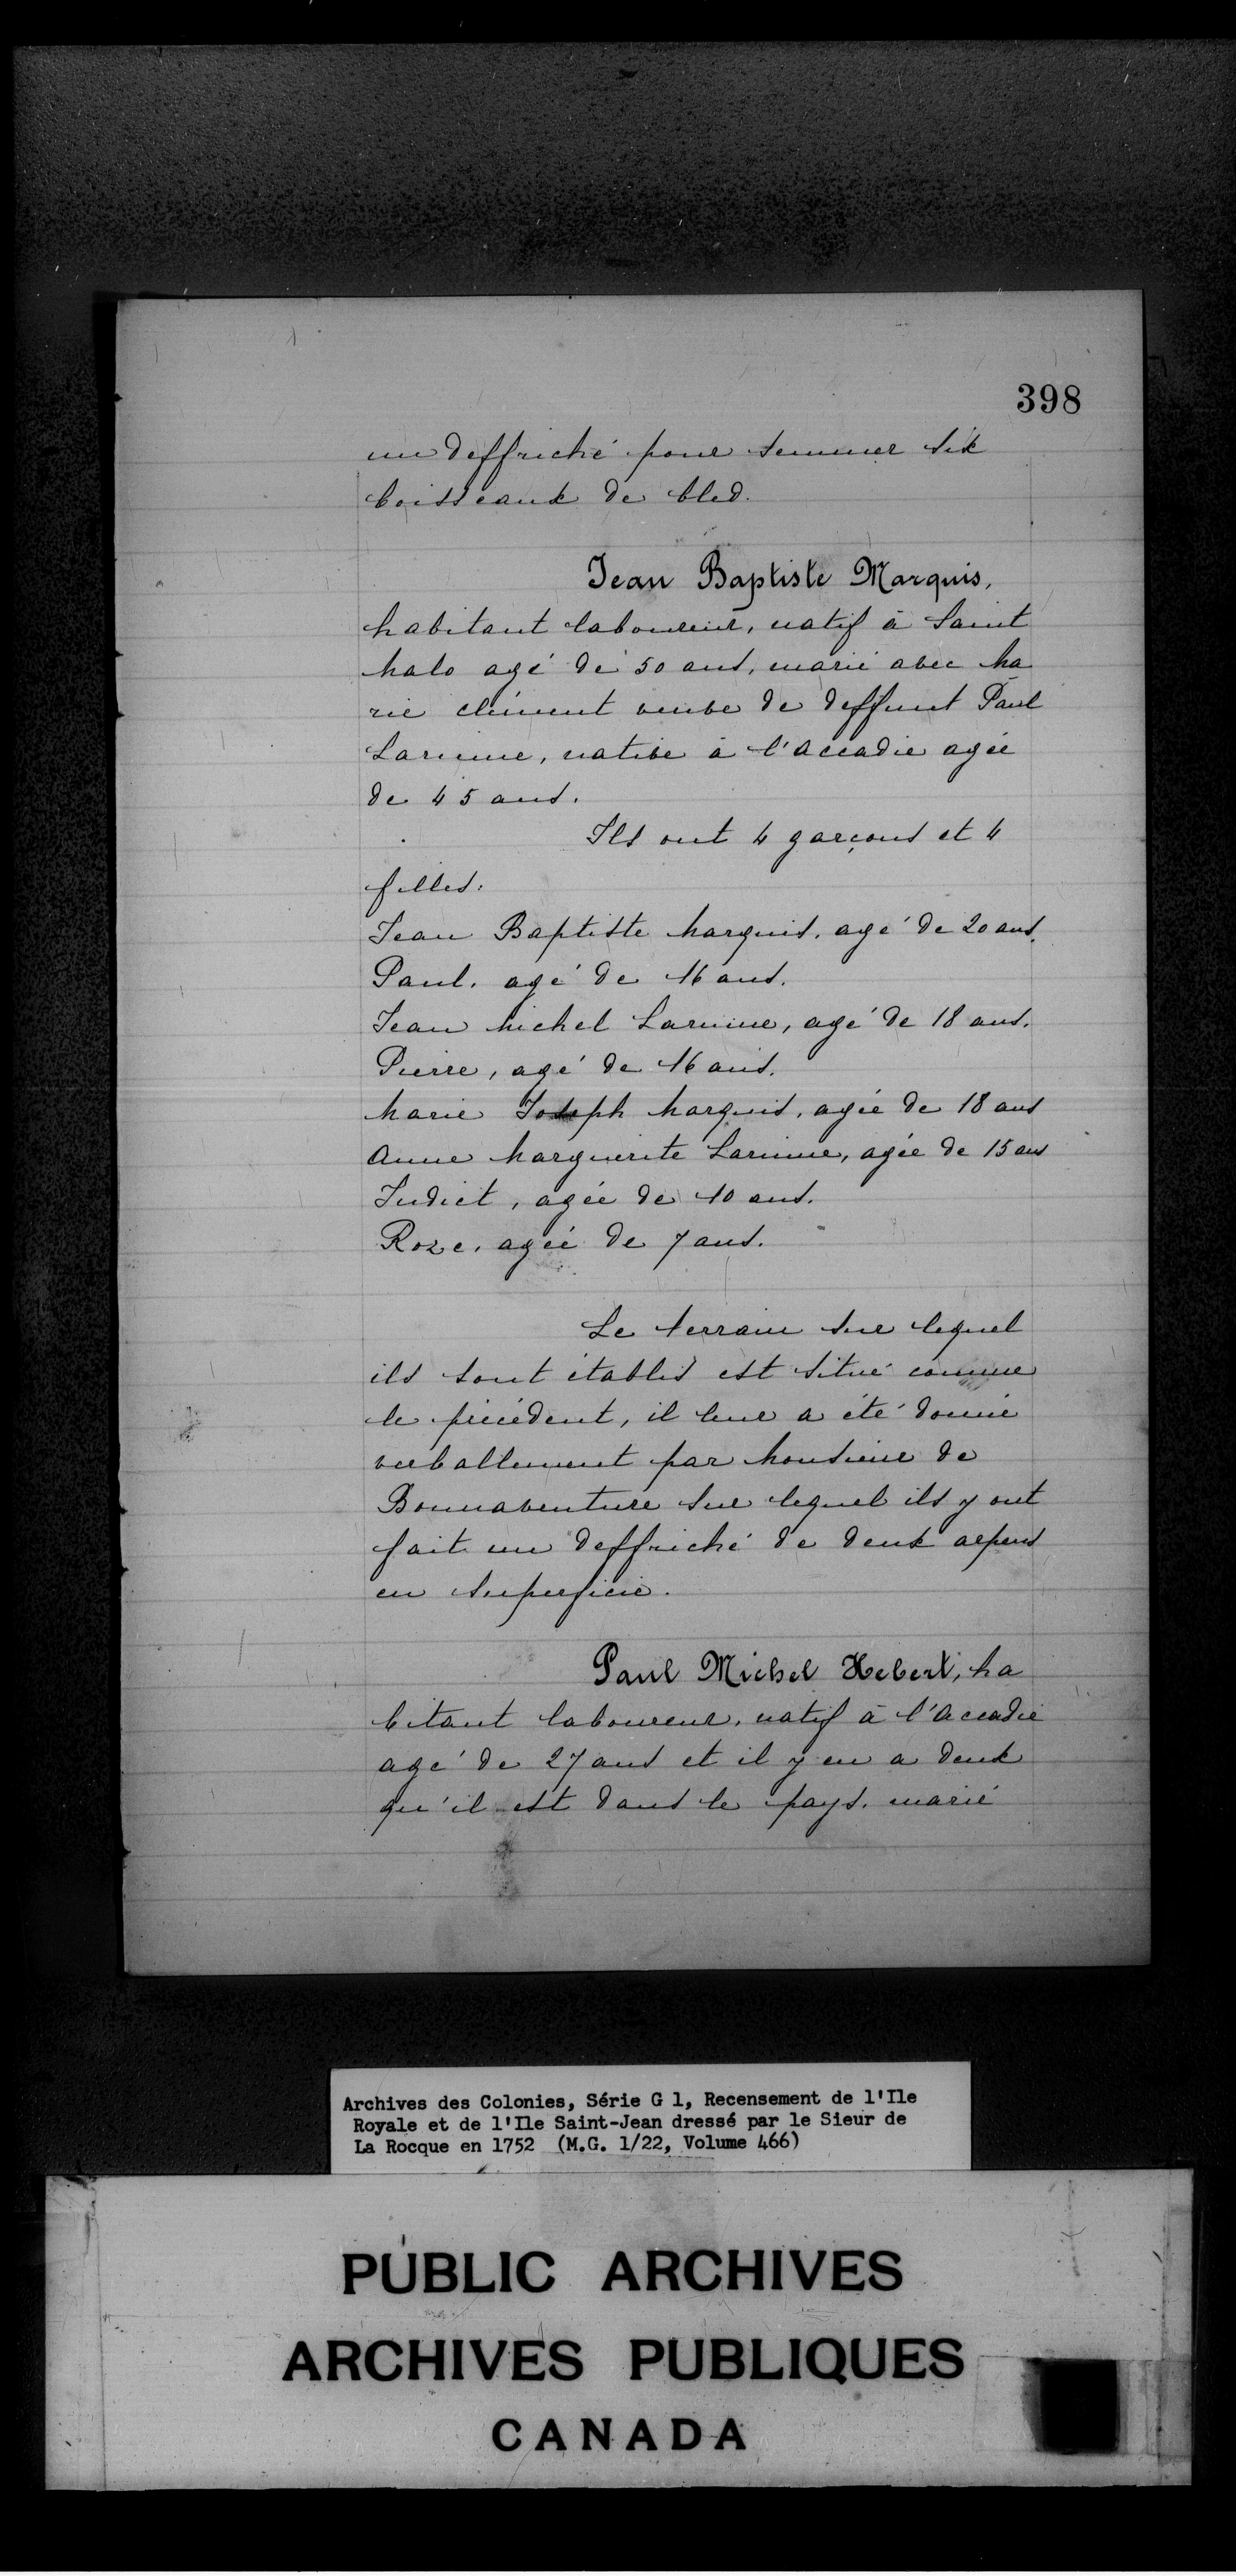 398
un deffriché pour semmer six
boisseaux de bled.
Jean Baptiste Marquis,
habitant laboureur, natif à Saint
Malo agé de 50 ans, marié avec Ma
rie clément veuve de deffunt Paul
Larnine, native à l'accadie agée
de 45 ans.
Ils ont 4 garçons et 4
filles:
Jean Baptiste Marquis, agé de 20 ans.
Paul, agé de 16 ans.
Jean Michel Larnine, agé de 18 ans.
Pierre, agé de 16 ans.
Marie Joseph Marquis, agée de 18 ans
Anne Marguerite Larnine, agée de 15 ans
Judict, agée de 10 ans.
Roze, agée de 7 ans.
Le terrain sur lequel
ils sont établis est situé comme
le précédent, il leur a été donné
verballement par Monsieur de
Bonnaventure sur lequel ils y ont
fait un deffriché de deux arpens
en superficie.
Paul Michel Hebert, ha
bitant laboureur, natif à l'accadie
agé de 27 ans et il y en a deux
qu'il est dans le pays, marié
Archives des Colonies, Série G 1, Recensement de l'Ile
Royale et de l'Ile Saint-Jean dressé par le Sieur de
La Rocque en 1752 (M.G. 1/22, Volume 466)
PUBLIC ARCHIVES
ARCHIVES PUBLIQUES
CANADA